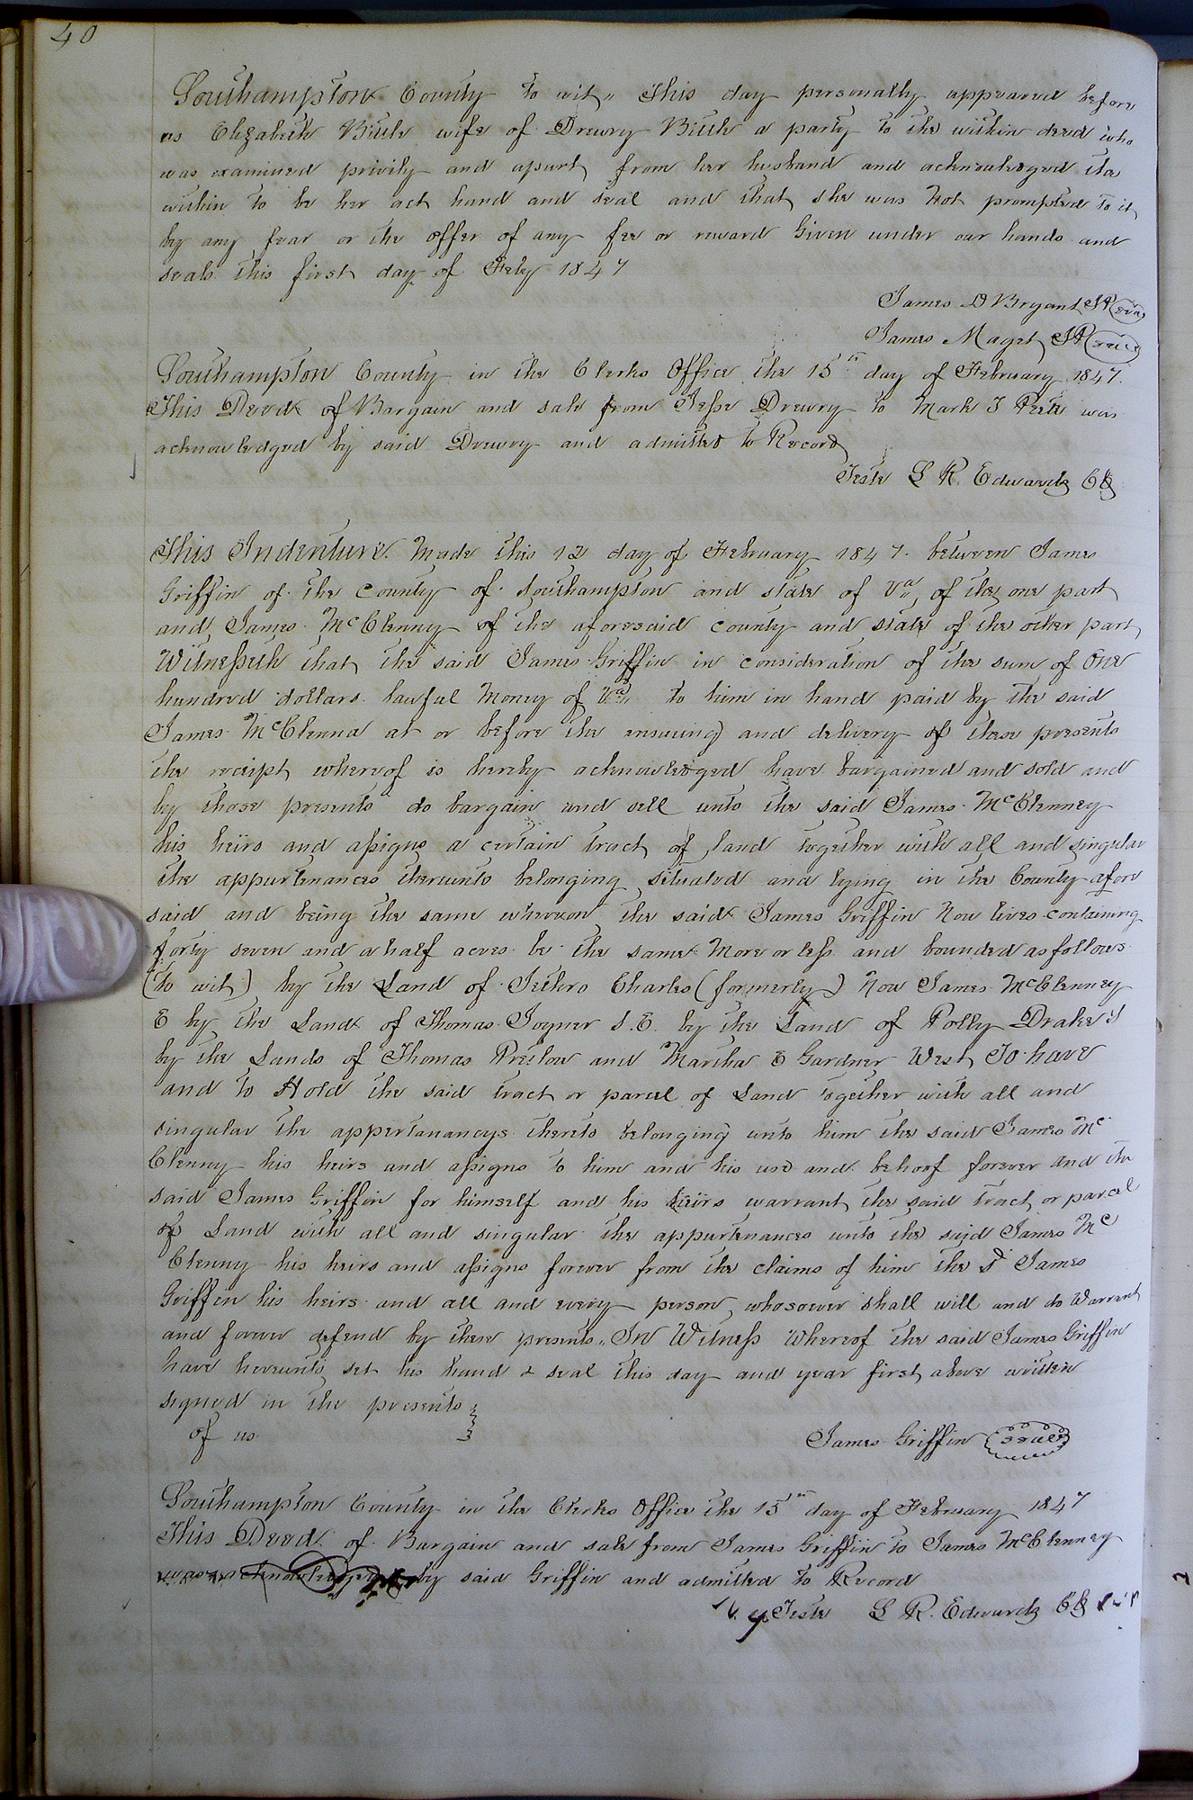 40
Southampton County to wit,, This day personally appeared before
us Elizabeth Beale wife of Drewry Beale a party to the within deed who
was examined privily and apart from her husband and acknowledged the
within to be her act hand and seal and that she was not prompted to it
by any fear or the offer of any fee or reward Given under our hands and
seals this first day of Feby 1847
James D Bryant JP (seal)
James Maget JP (seal)
Southampton County in the Clerks Office the 15th day of February 1847.
This Deed of Bargain and sale from Jesse Drewry to Mark J was
acknowledged by said Drewry and admitted to Record
Teste L R. Edwards Clk
This Indenture Made this 12 day of February 1847. between James
Griffin of the County of Southampton and state of Va,, of the one part
and James McClenny of the aforesaid county and state of the other part
Witnesseth that the said James Griffin in consideration of the sum of One
hundred dollars lawful Money of Va,, to him in hand paid by the said
James McClenna at or before the ensuing and delivery of these presents
the receipt whereof is hereby acknowledged have bargained and sold and
by those presents do bargain and sell unto the said James McClenney
his heirs and assigns a certain tract of land together with all and singular
the appurtenances thereunto belonging situated and lying in the County afore
said and being the same whereon the said James Griffin Now lives containing
forty seven and a half acres be the same More or less and bounded as follows
(to wit) by the Land of Jethro Charles (formerly) Now James McClenney
E by the Land of Thomas Joyner S. E. by the Land of Polly Drake S
by the Lands of Thomas Pretlow and Martha E Gardner West To have
and to Hold the said tract or parcel of Land together with all and
singular the appertanancys thereto belonging unto him the said James Mc
Clenny his heirs and assigns to him and his use and behoof forever and the
said James Griffin for himself and his heirs warrant the said tract or parcel
of Land with all and singular the appurtenances unto the said James Mc
Clenny his heirs and assigns forever from the claims of him the sd James
Griffin his heirs and all and every person whosoever shall will and do Warrant
and forever defend by these presents,, In Witness Whereof the said James Griffin
have hereunto set his hand & seal this day and year first above written
signed in the presents
of us
James Griffin (seal)
Southampton County in the Clerks Office the 15th day of February 1847
This Deed of Bargain and sale from James Griffin to James McClenney
was acknowledged by said Griffin and admitted to Record
Teste L R. Edwards Clk